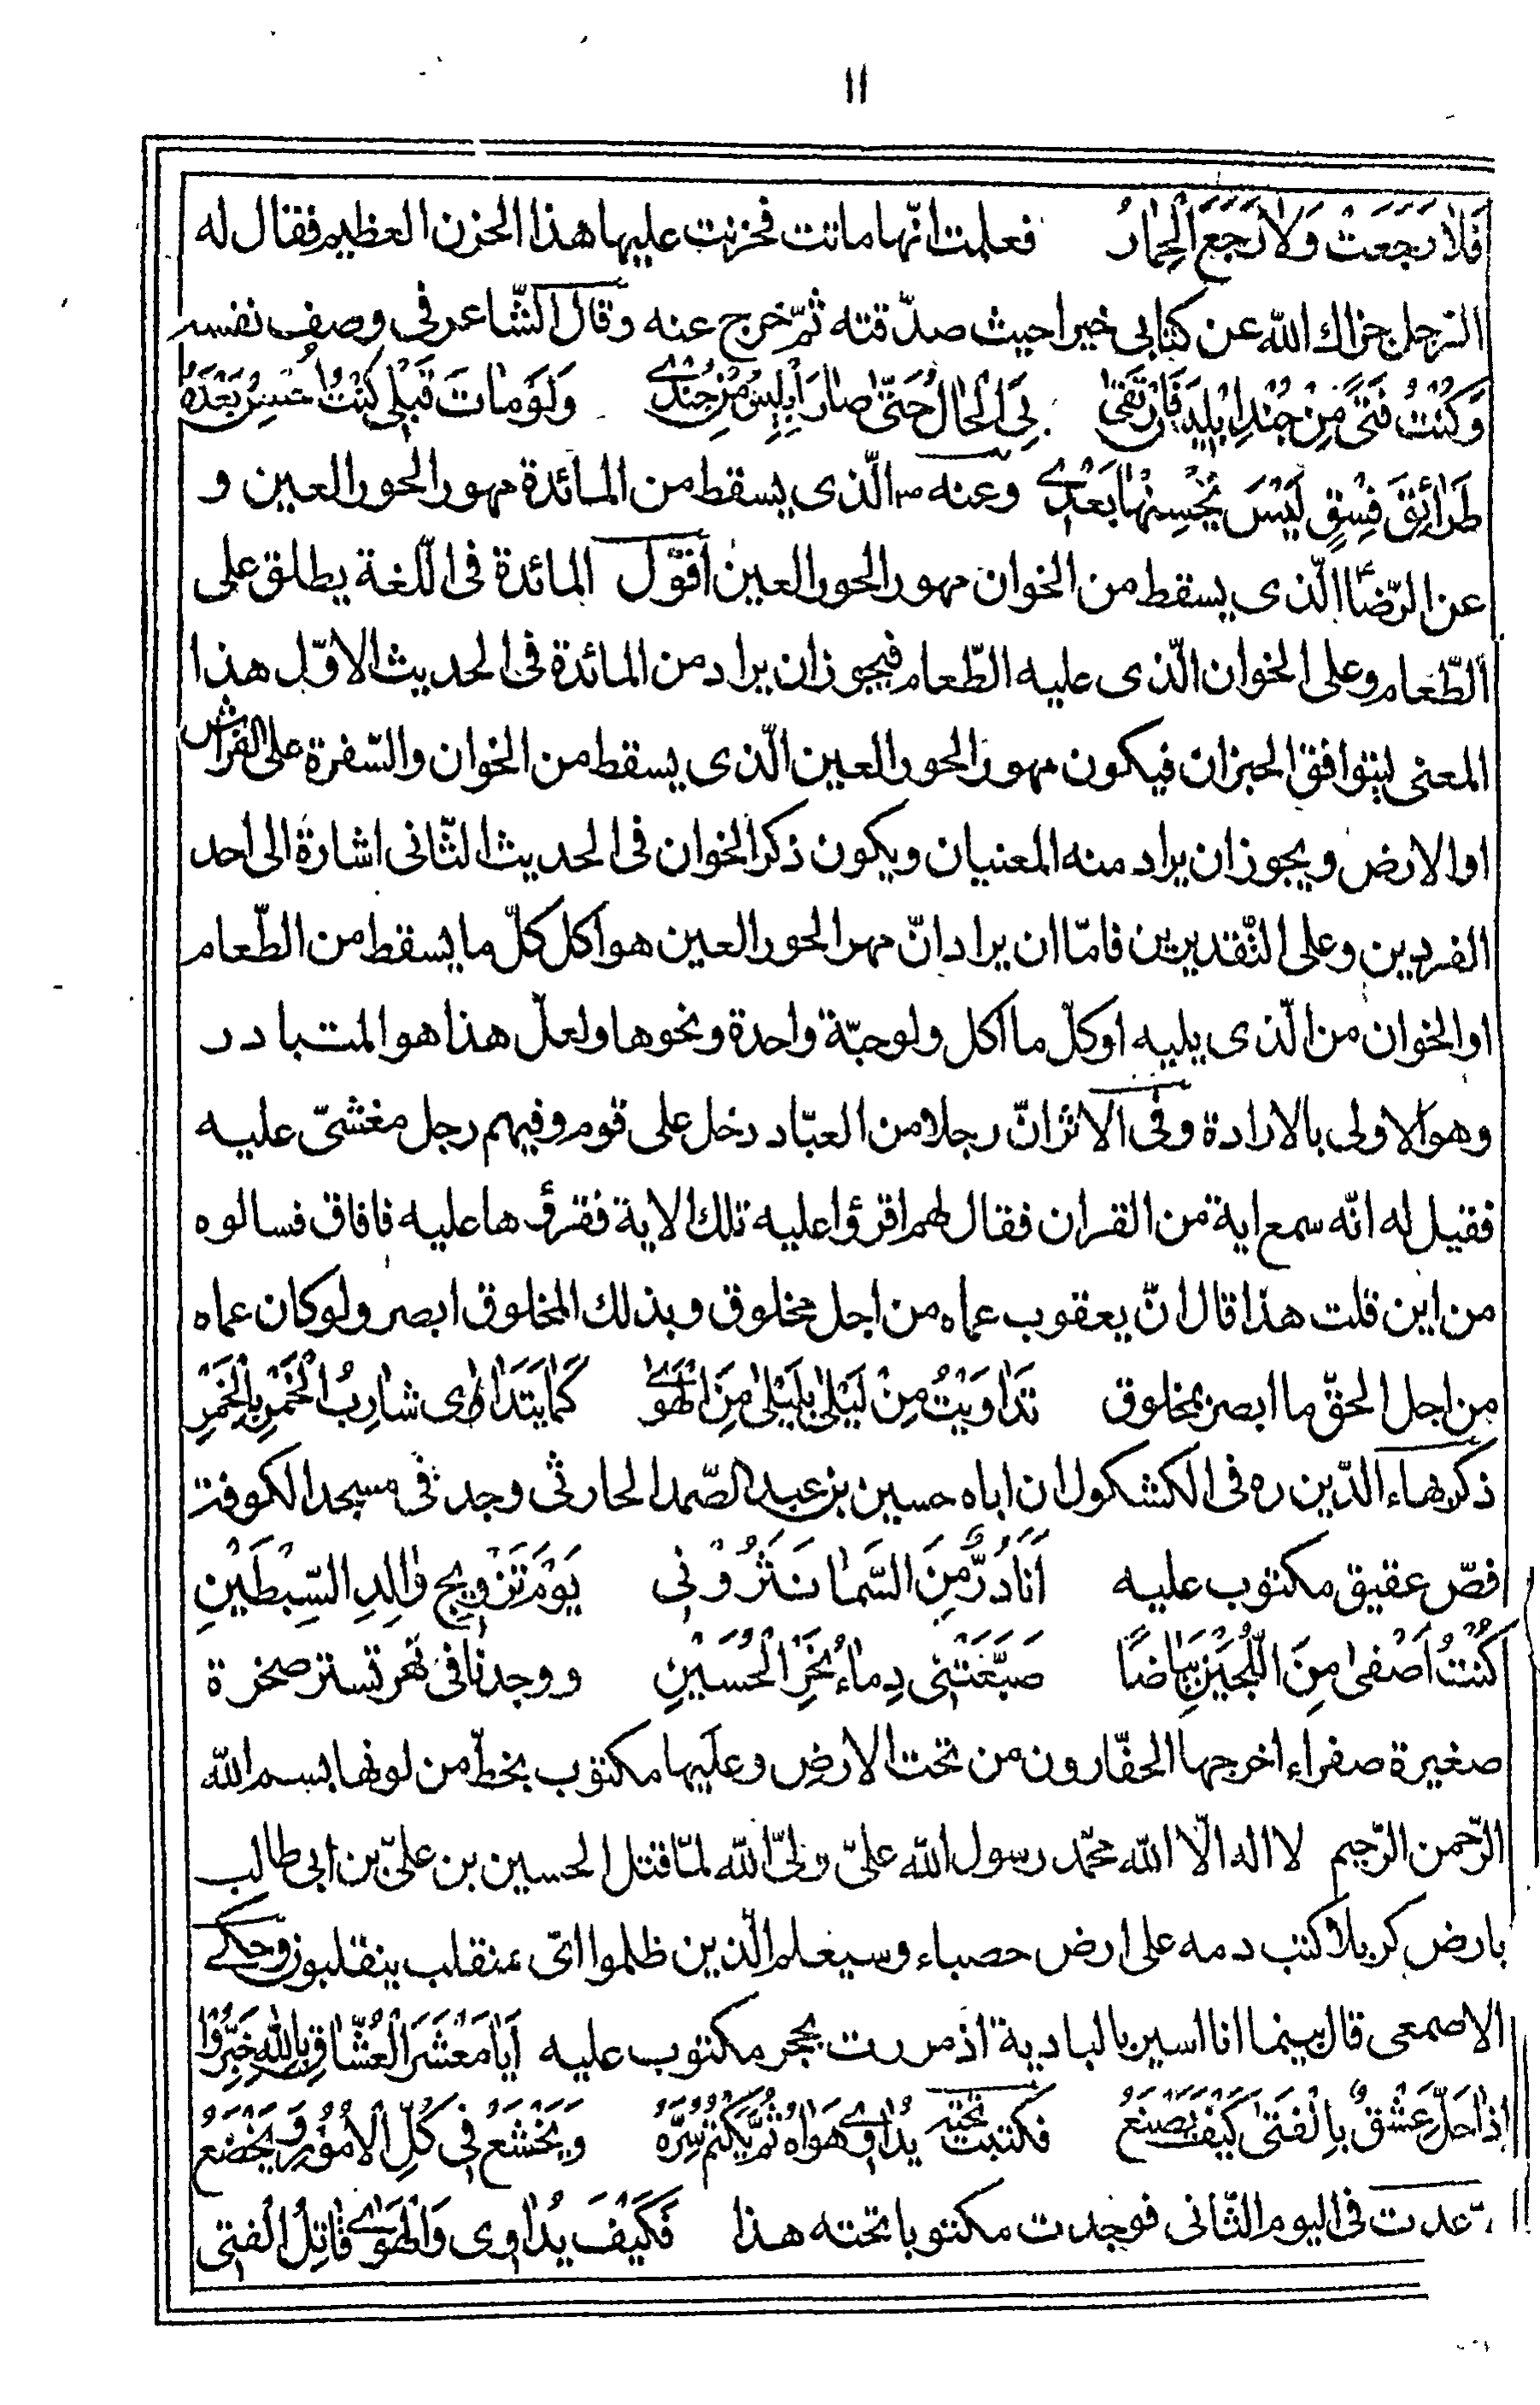 ١١
فَلَا رَجَعَتْ وَلَا رَجَعَ الْحِمَارُ فعلمت انّها ماتت فحزنت عليها هذا الحزن العظيم فقال له
الرّجل جزاك الله عن كتابى خيرا حيث صدّقته ثمّ خرج عنه وقال الشّاعر فى وصف نفسه
وَكُنْتُ فَتًى مِنْ جُنْدِ اِبْلِيسَ فَارْتَقَىٰ بِىَ الْحَالُ حَتّىٰ صَارَ اِبْلِيسُ مِنْ جُنْدِى وَلَوْ مَاتَ قَبْلِى كُنْتُ اُحْسِنُ بَعْدَهُ
طَرَائِقَ فِسْقٍ لَيْسَ يُحْسِنُهَا بَعْدِى وعنه ص الّذى يسقط من المائدة مهور الحور العين و
عن الرّضا ع الّذى يسقط من الخوان مهور الحور العين اقول المائدة فى اللّغة يطلق على
الطّعام وعلى الخوان الّذى عليه الطّعام فيجوز ان يراد من المائدة فى الحديث الاوّل هذا
المعنى ليتوافق الخبران فيكون مهور الحور العين الّذى يسقط من الخوان والسّفرة على الفراش
او الارض ويجوز ان يراد منه المعنيان ويكون ذكر الخوان فى الحديث الثّانى اشارة الى احد
الفردين وعلى التّقديرين فامّا ان يراد انّ مهر الحور العين هو اكل كلّ ما يسقط من الطّعام
او الخوان من الّذى يليه او كلّ ما اكل ولو حبّة واحدة ونحوها ولعلّ هذا هو المتبادر
وهو الاولى بالارادة وفى الاثر انّ رجلا من العبّاد دخل على قوم وفيهم رجل مغشىّ عليه
فقيل له انّه سمع اية من القران فقال لهم اقرؤا عليه تلك الاية فقرؤها عليه فافاق فسالوه
من اين قلت هذا قال انّ يعقوب عماه من اجل مخلوق وبذلك المخلوق ابصر ولو كان عماه
من اجل الحقّ ما ابصر بمخلوق تَدَاوَيْتُ مِنْ لَيْلىٰ بِلَيْلىٰ مِنَ الْهَوىٰ كَمَا يَتَدَاوٰى شَارِبُ الْخَمْرِ بِالْخَمْرِ
ذكر بهاء الدّين ره فى الكشكول ان اباه حسين بن عبد الصّمد الحارثى وجد فى مسجد الكوفة
فصّ عقيق مكتوب عليه اَنَا دُرٌّ مِنَ السَّمَا نَثَرُوْنِى يَوْمَ تَزْوِيجِ وٰالِدِ السِّبْطَيْنِ
كُنْتُ اَصْفىٰ مِنَ اللُّجَيْنِ بَيَاضًا صَبَغَتْنِى دِمَاءُ نَحْرِ الْحُسَيْنِ ووجدنا فى نهر تستر صخرة
صغيرة صفراء اخرجها الحفّارون من تحت الارض وعليها مكتوب بخطّ من لونها بسم الله
الرّحمن الرّحيم لا اله الّا الله محمّد رسول الله علىّ ولىّ الله لمّا قتل الحسين بن علىّ بن ابى طالب
بارض كربلا كتب دمه على ارض حصباء وسيعلم الّذين ظلموا اىّ منقلب ينقلبون وحكى
الاصمعى قال بينما انا اسير بالبادية اذ مررت بحجر مكتوب عليه اَيَا مَعْشَرَ الْعُشَّاقِ بِاللهِ خَبِّرُوا
اِذَا حَلَّ عِشْقٌ بِالْفَتىٰ كَيْفَ يَصْنَعُ فكتبت تحته يُدَاوِى هَوَاهُ ثُمَّ يَكْتُمُ سِرَّهُ وَيَخْشَعُ فِى كُلِّ الْاُمُوْرِ وَيَخْضَعُ
عدت فى اليوم الثّانى فوجدت مكتوبا تحته هذا فَكَيْفَ يُدَاوِى وَالْهَوىٰ قَاتِلُ الْفَتىٰ